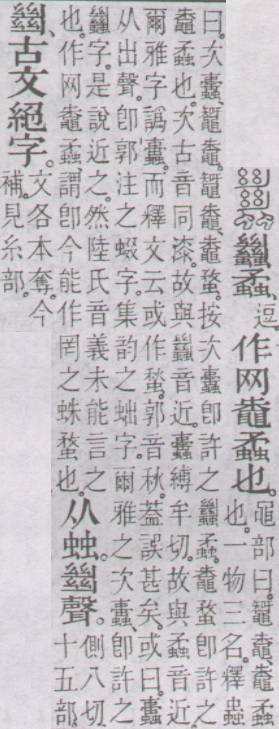 蠿蟊。逗 作网鼄蟊也。
黽部曰。鼅鼄、鼄蟊
也。一物三名。釋蟲
曰。次蟗、鼅鼄。鼅鼄、鼄蝥。按次蟗卽許之蠿蟊。鼄蝥卽許之
鼄蟊也。次古音同漆。故與蠿音近。蟗縛牟切。故與蟊音近。
爾雅字譌蟗。而釋文云或作蝥。郭音秋。葢誤甚矣。或曰蟗
从出聲。卽郭注之蝃字。集韵之蚰字。爾雅之次蟗、卽許之
蠿字。是說近之。然陸氏音義未能言之
也。作网鼄蟊、謂卽今能作罔之蛛蝥也。
从䖵。𢇍聲。
側八切
十五部
𢇍、古文絕字。
文各本奪。今
補。見糸部。